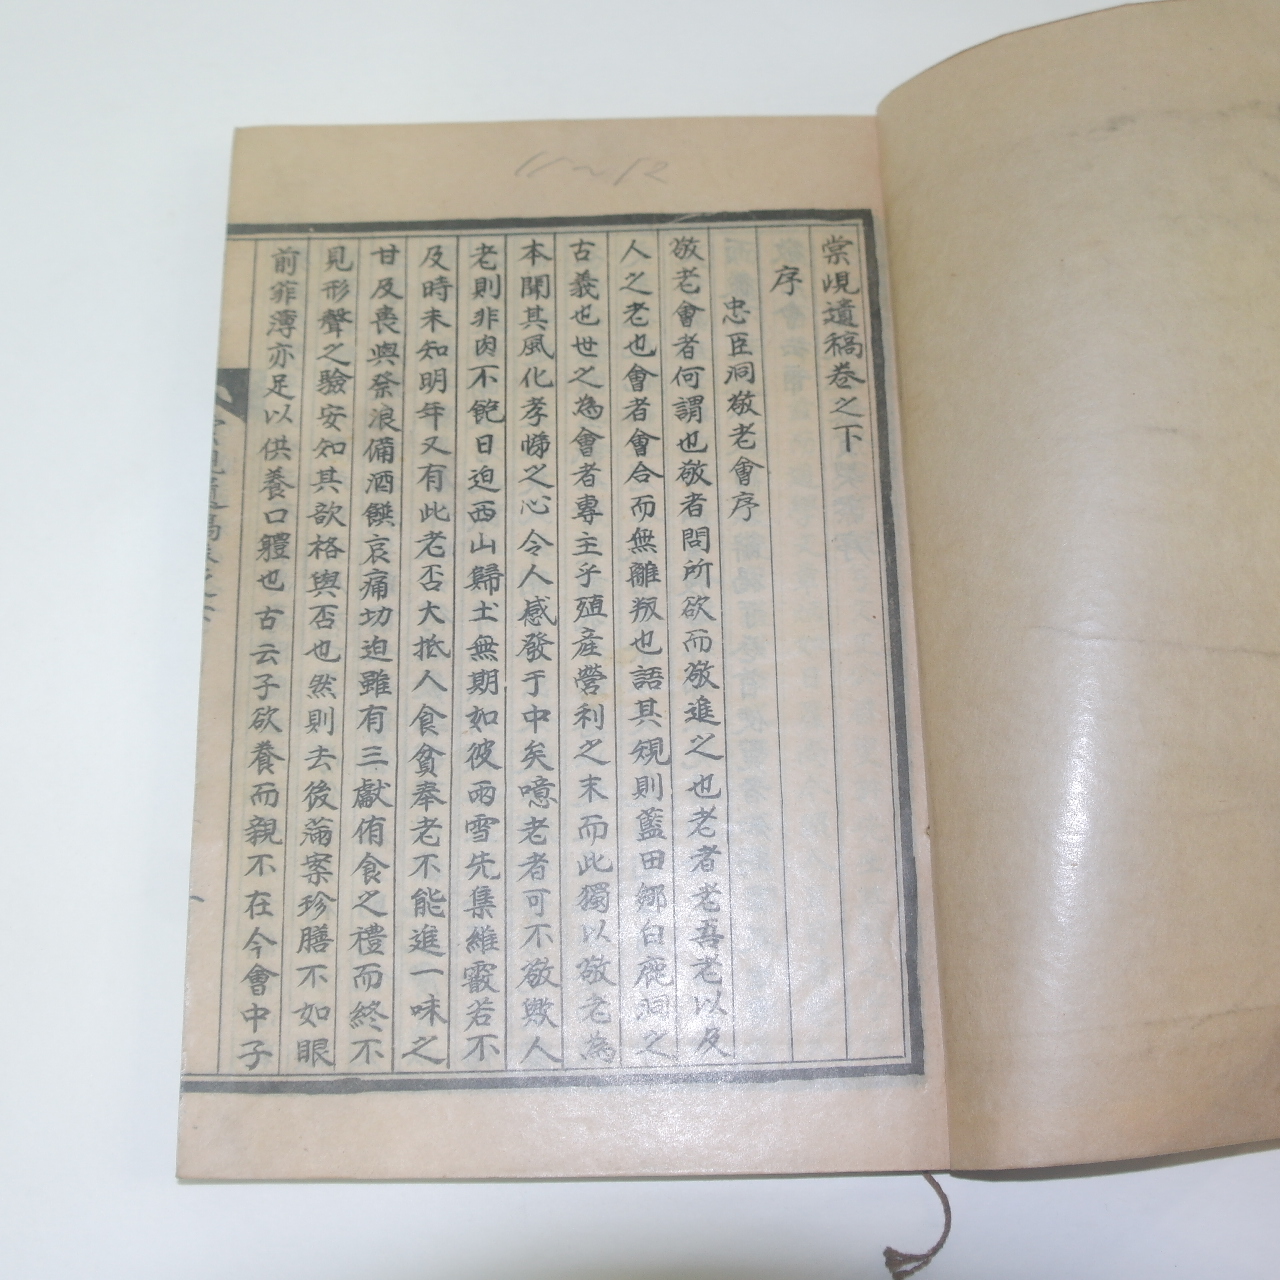 11~12
棠峴遺稿卷之下
序
忠臣洞敬老會序
敬老會者何謂也敬者問所欲而敬進之也老者老吾老以及
人之老也會者會合而無離叛也語其規則藍田鄉白鹿洞之
古義也世之為會者專主乎殖産營利之末而此獨以敬老為
本聞其風化孝悌之心令人感發于中矣噫老者可不敬歟人
老則非肉不飽日迫西山歸土無期如彼雨雪先集維霰若不
及時未知明年又有此老否大抵人食貧奉老不能進一味之
甘及喪與祭浪備酒饌哀痛切迫雖有三獻侑食之禮而終不
見形聲之驗安知其歆格與否也然則去後滿案珍膳不如眼
前菲薄亦足以供養口軆也古云子欲養而親不在今會中子
棠峴遺稿卷之下
一